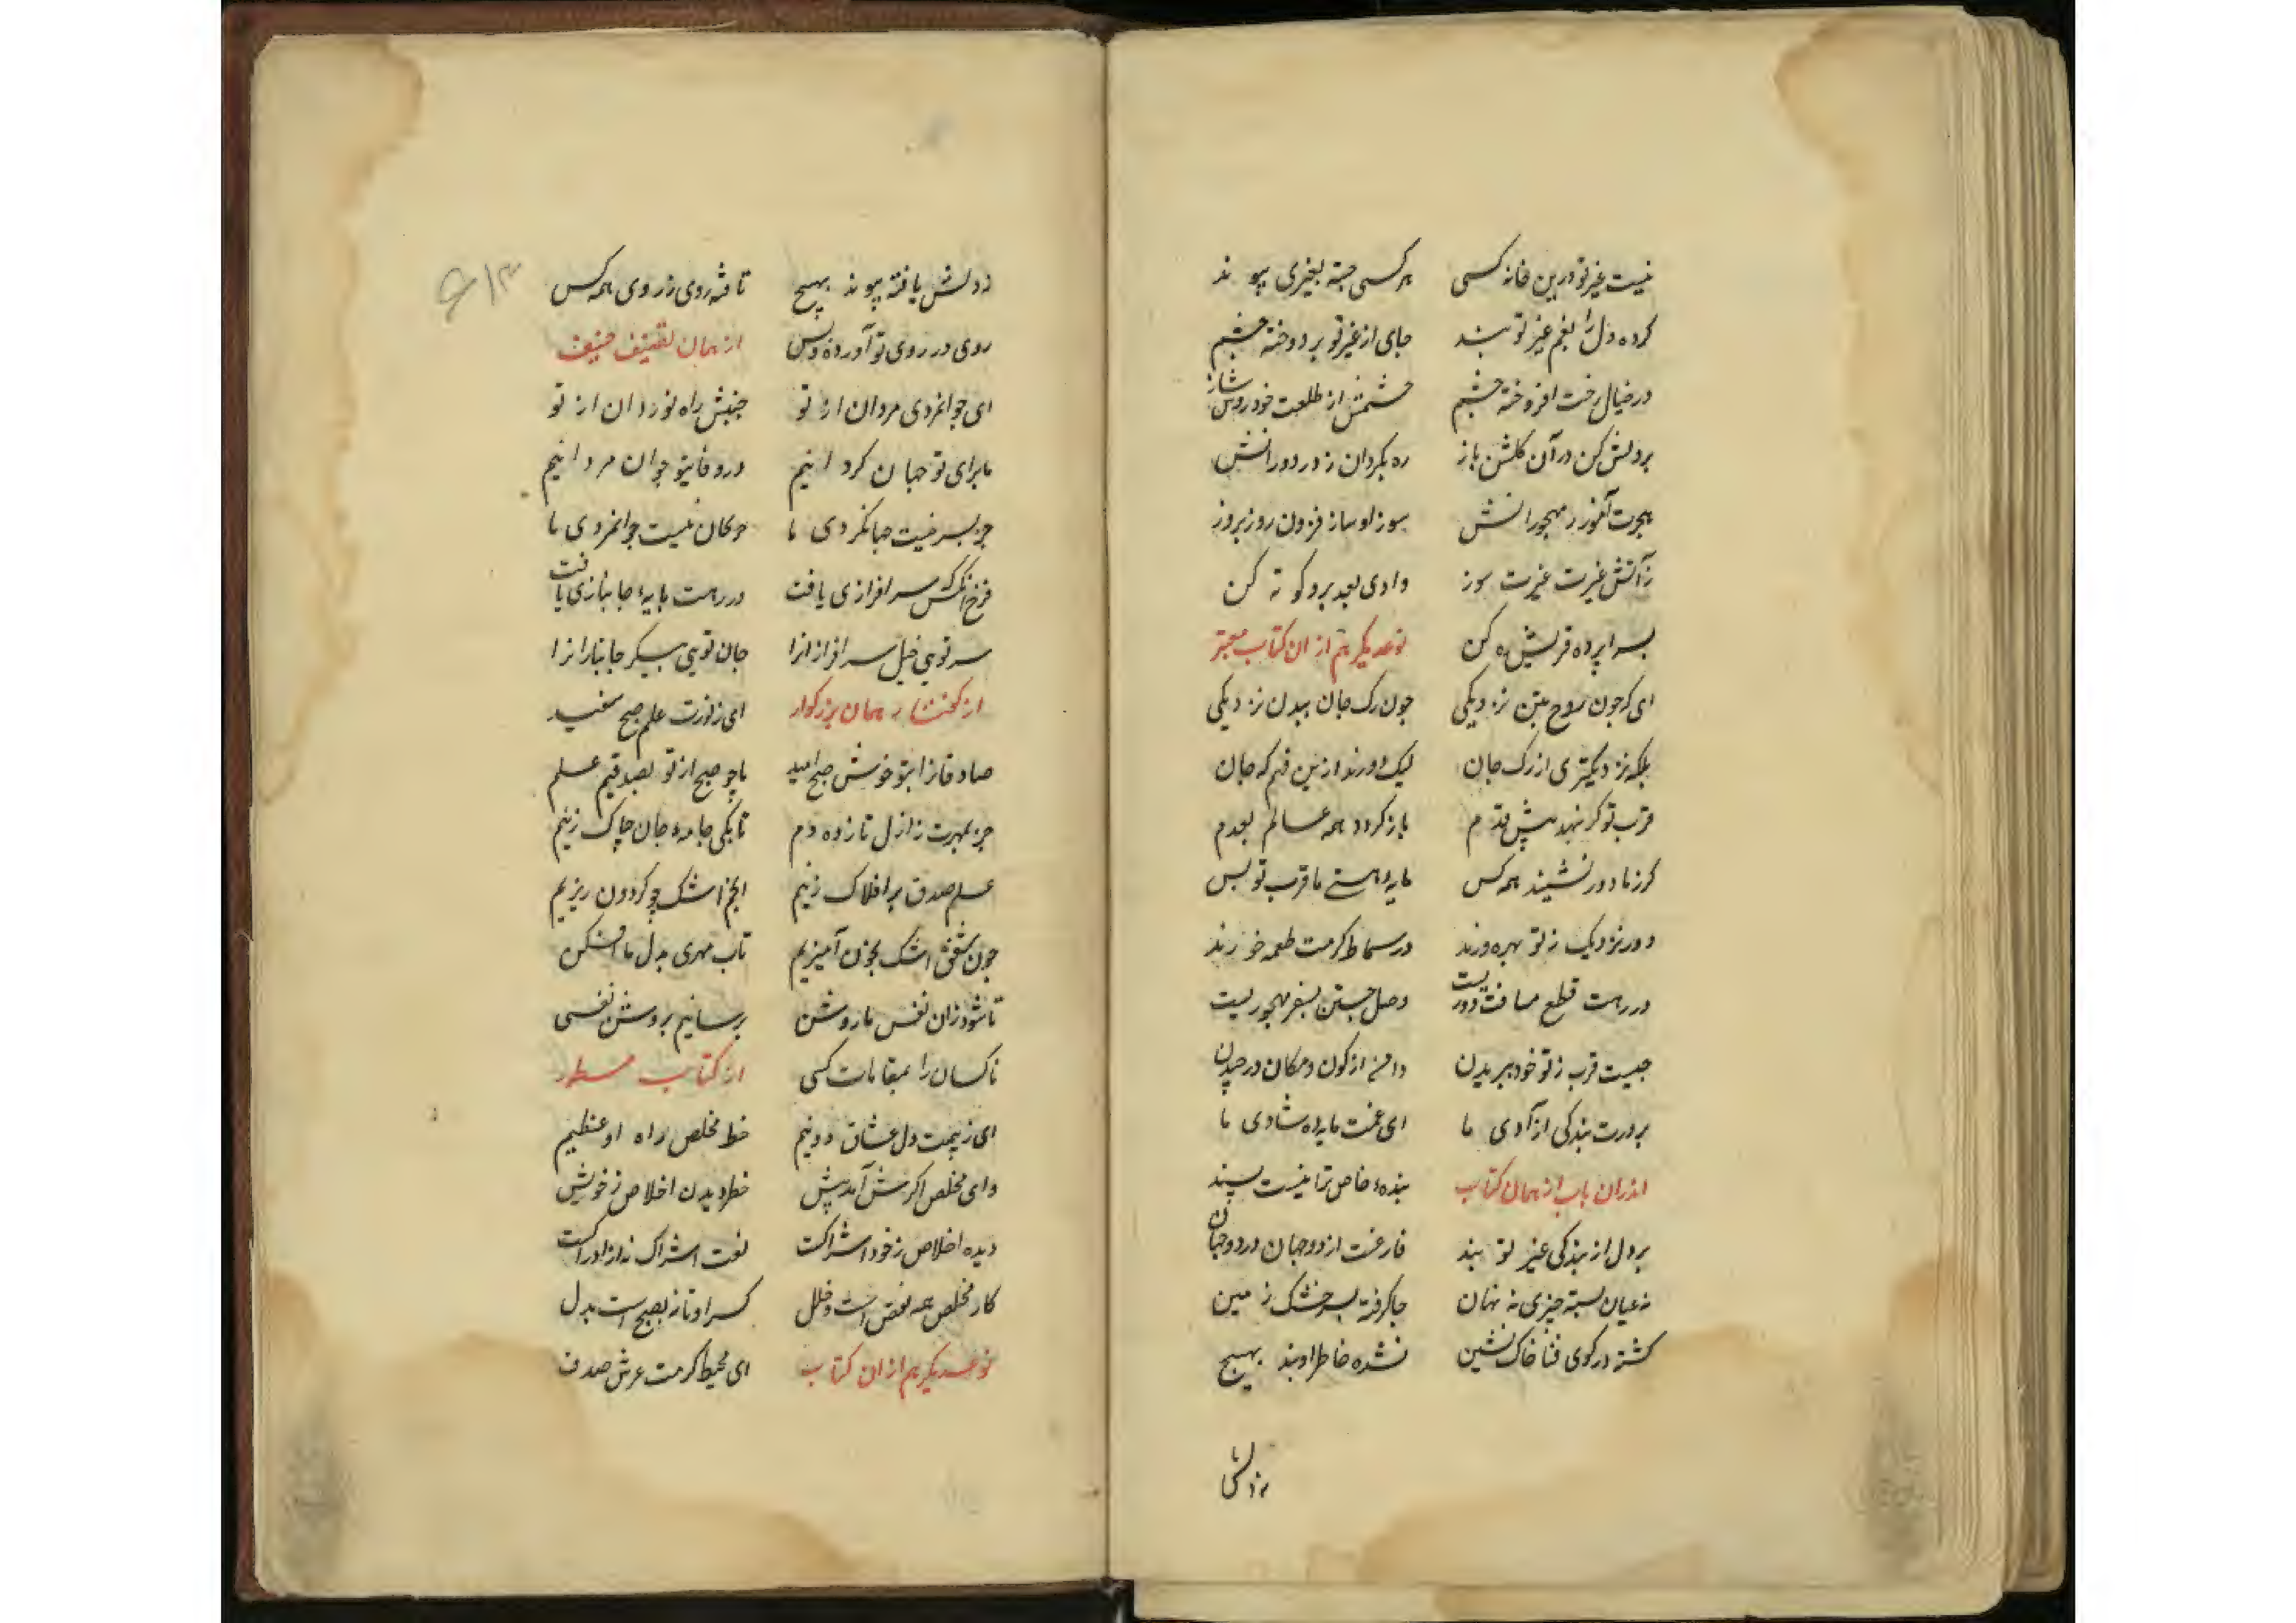 نیست غیر تو درین خانه کسی هر کسی جسته بغیری پیوند
کرده دل را بغم غیر تو بند جامی از غیر تو بر دوخته چشم
در خیال رخت افروخته چشم چشمش از طلعت خود روشن ساز
بر دلش کن در آن گلشن باز ره بگردان ز در دورانش
هجرت آموز ز مهجورانش سوز او ساز فزون روز بروز
ز آتش غیرت غیرت سوز وادی بعد برو کوته کن
بسراپرده قربش ره کن نوعدیگر هم از ان کتاب معتبر
ای که چون روح بتن نزدیکی چون رگ جان ببدن نزدیکی
بلکه نزدیکتری از رگ جان لیک دورند ازین فهم که جان
قرب تو گر ننهد پیش قدم باز گردد همه عالم بعدم
گر ز ما دور نشیند همه کس مایه هستی ما قرب تو بس
دور و نزدیک ز تو بهره ورند در سماط کرمت طعمه خورند
در رهت قطع مسافت دوریست وصل جستن بسفر مهجوریست
چیست قرب ز تو خود ببریدن دامن از کون و مکان درچیدن
بر درت بندگی آزادی ما ای غمت مایه شادی ما
اندران باب از همان کتاب بنده خاص ترا نیست پسند
بر دل از بندگی غیر تو بند فارغست از دو جهان در دو جهان
نه عیان بسته چیزی نه نهان جا گرفته بسر خشک زمین
گشته در کوی فنا خاک نشین نشده خاطر او بند بهیچ
نه دلش
نه دلش یافته پیوند بهیچ تافته روی ز روی همه کس
روی در روی تو آورده و بس از همان تصنیف حنیف
ای جوانمردی مردان از تو جنبش راه نوردان از تو
ما برای تو جهان گردانیم در وفای تو جوان مردانیم
جز بسر نیست جهانگردی ما جز کان نیست جوانمردی ما
فرخ آنکس که سرافرازی یافت در رهت پایه جانبازی یافت
سر تویی خیل سرافرازانرا جان تویی پیکر جانبازانرا
از گفتار همان بزرگوار ای ز نورت علم صبح سفید
صادقانرا بتو خوش صبح امید ما چو صبح از تو بصدقیم علم
جز بمهرت ز ازل نازده دم تا بکی جامه جان چاک زنیم
علم صدق بر افلاک زنیم انجم اشک چو گردون ریزیم
چون شفق اشک بخون آمیزیم تاب مهری بدل ما افکن
تا شود زان نفس ما روشن برسانیم بروشن نفسی
ناکسان را بمقامات کسی از کتاب مسطور
ای ز بیمت دل عشاق دو نیم خطر مخلص راه او عظیم
وای مخلص اگرش آمد پیش خطر دیدن اخلاص ز خویش
دیده اخلاص ز خود اشراکست لعنت اشراک نه از ادراکست
کار مخلص همه نقص است و خلل کسر او تا نه بصحت بدل
نوعدیگر هم از ان کتاب ای محیط کرمت عرش صدف